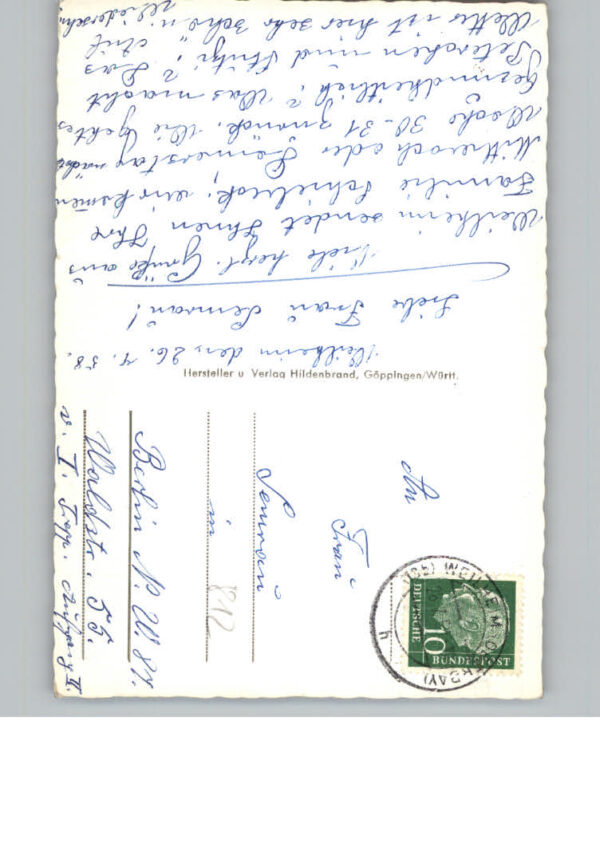 Weilheim den, 26. 7. 58.
Liebe Frau Semrau!
Viele herzl. Grüße aus
Weilheim sendet Ihnen Ihre
Familie Schielick, wir kommen
Mittwoch oder Donnerstag nächste
Woche 30-31 zurück. Wie geht es
gesundheitlich? Was macht
Peterchen und Mutzi? Das
Wetter ist hier sehr schön. Auf
Wiedersehn
Hersteller u Verlag Hildenbrand, Göppingen/Württ.
An
Frau
Semrau
in
812
Berlin N. W. 87.
Waldstr. 55.
v. I. Trepp. Aufgang II.
(13b) WEILHEIM (OBERBAY)
h
10
DEUTSCHE
BUNDESPOST